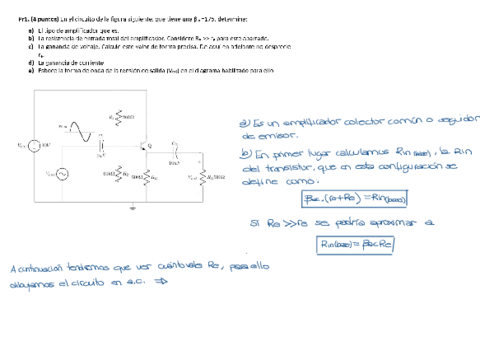 Pr1. (4 puntos) En el circuito de la figura siguiente, que tiene una β =175, determine:
a) El tipo de amplificador que es.
b) La resistencia de entrada total del amplificador. Considere Rₑ >> rₑ para este apartado.
c) La ganancia de voltaje. Calcule este valor de forma precisa. De aquí en adelante no desprecie
rₑ.
d) La ganancia de corriente
e) Esboce la forma de onda de la tensión de salida (Vout) en el diagrama habilitado para ello
a) Es un amplificador colector común o seguidor
de emisor.
b) En primer lugar calculamos Rin(base), la Rin
del transistor, que en esta configuración se
define como.
βac·(re+Re) = Rin(base)
Si Re >> re se podría aproximar a
Rin(base) = βac Re
A continuación tendremos que ver cuánto vale Re, para ello
dibujamos el circuito en a.c. ⇒